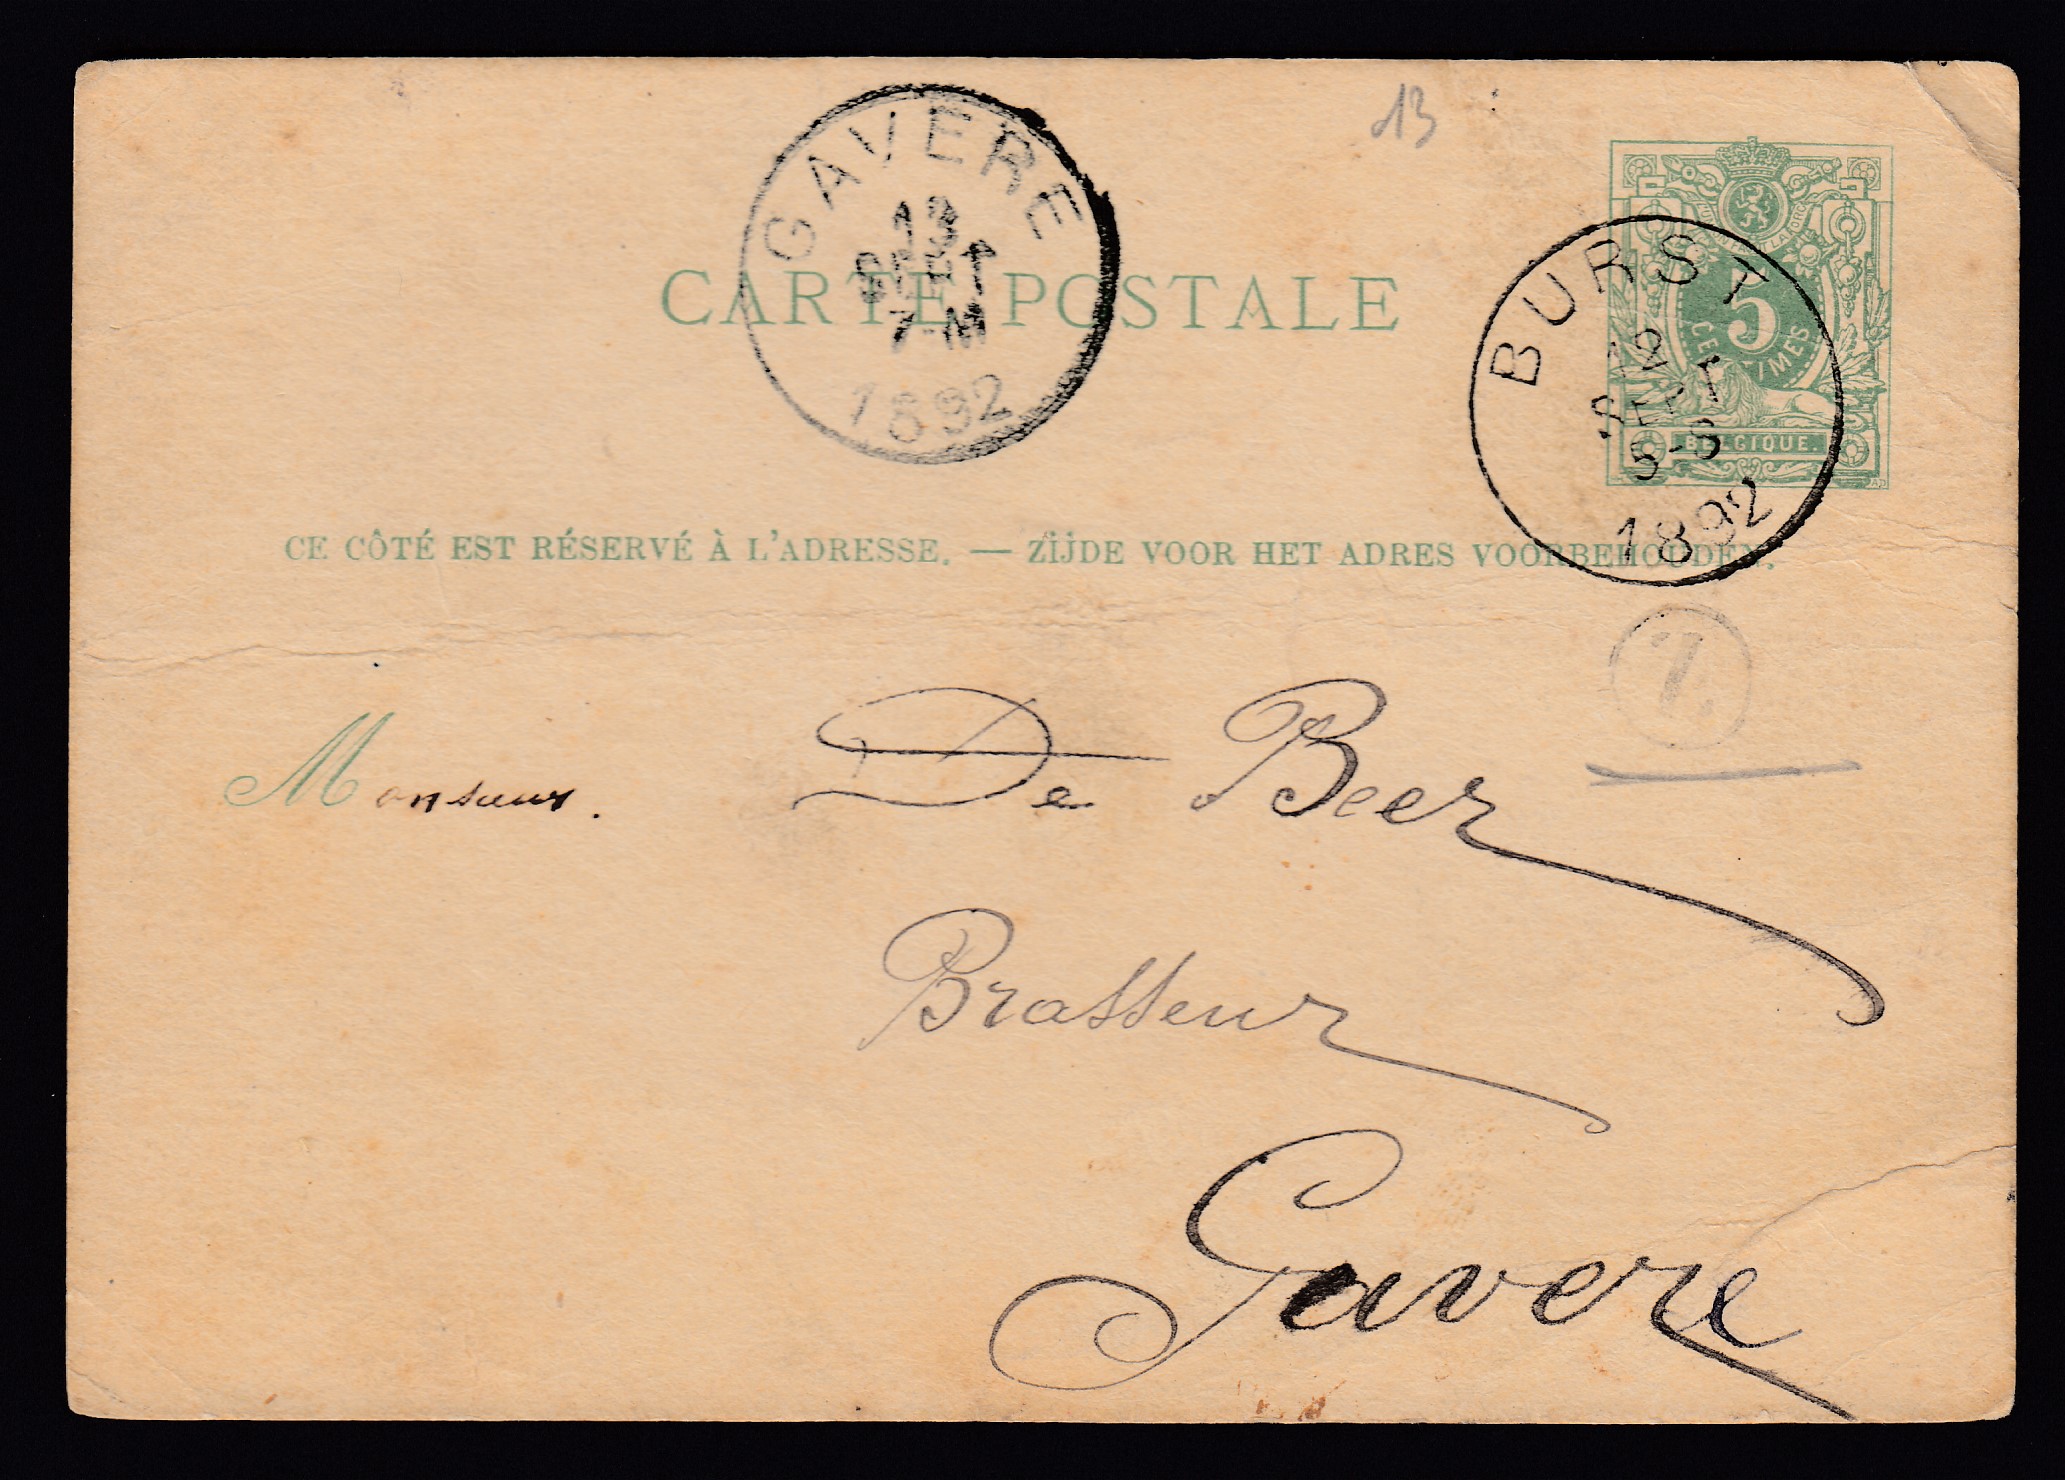 13
GAVERE
13
SEPT
7-M
1892
CARTE POSTALE
5
CENTIMES
BELGIQUE.
BURST
12
SEPT
5-6
1892
CE CÔTÉ EST RÉSERVÉ À L'ADRESSE. — ZIJDE VOOR HET ADRES VOORBEHOUDEN.
1
Monsieur. De Beer
Brasseur
Gavere